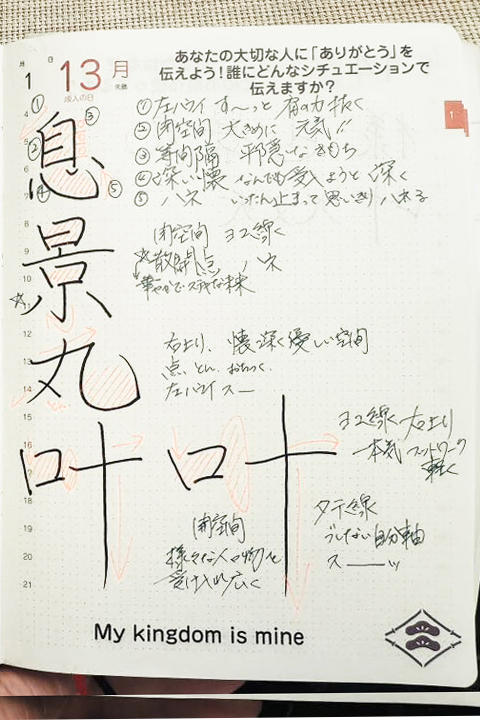 月 日
1 13 月
先勝
成人の日
あなたの大切な人に「ありがとう」を
伝えよう！誰にどんなシチュエーションで
伝えますか？
1
①左ハライ す〜っと 肩の力抜く
②閉空間 大きめに 元気!!
③等間隔
④深い懐 なんでも受入ようと 深く
⑤ハネ いったん止まって思いきりハネる
① ③ ② ④ ⑤
息
閉空間 ヨコ線く
☆散開点 ハネ
華やかでステキな未来
☆景
右上り、懐深く優しい空間
点、とん、おちつく、
左ハライ スー
丸
ヨコ線 右上り
一本気 フットワーク
軽く
叶 叶
タテ線
ブレない自分軸
スーッ
閉空間
様々な人や物を
受け入れ広く
4
5
6
7
8
9
10
11
12
13
14
15
16
17
18
19
20
21
My kingdom is mine